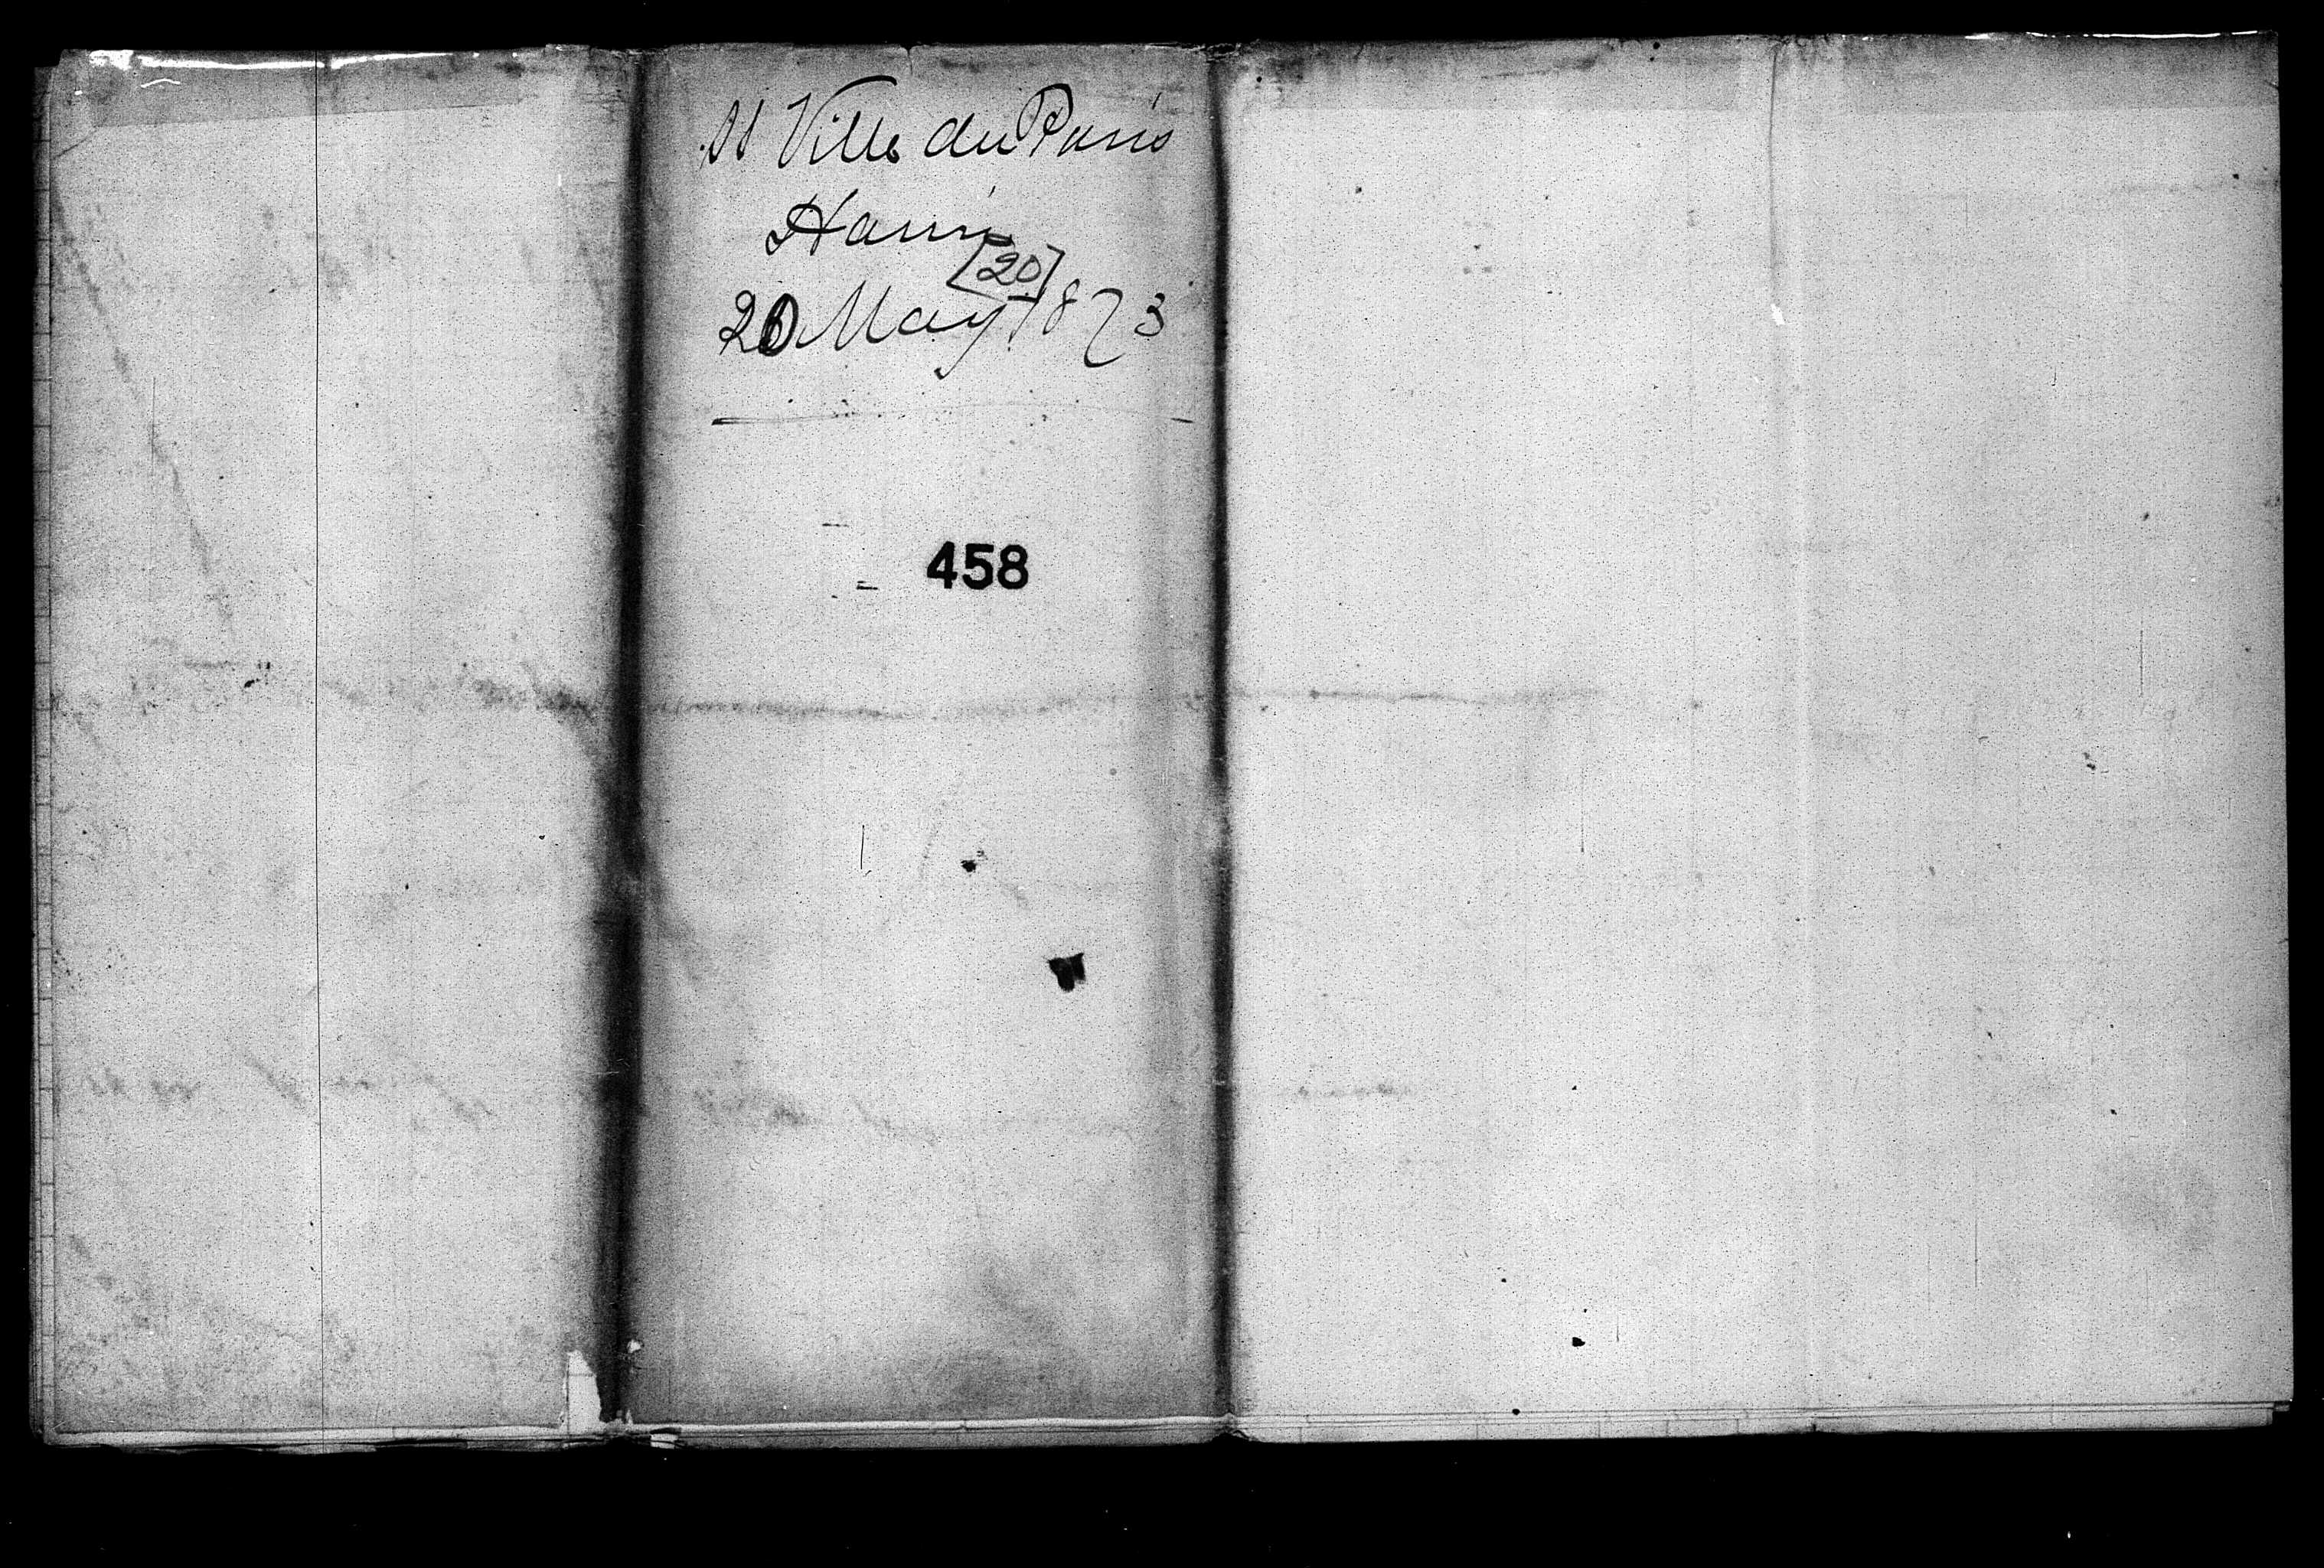 SS Ville du Paris
Havre
[20]
20 May 1873
458